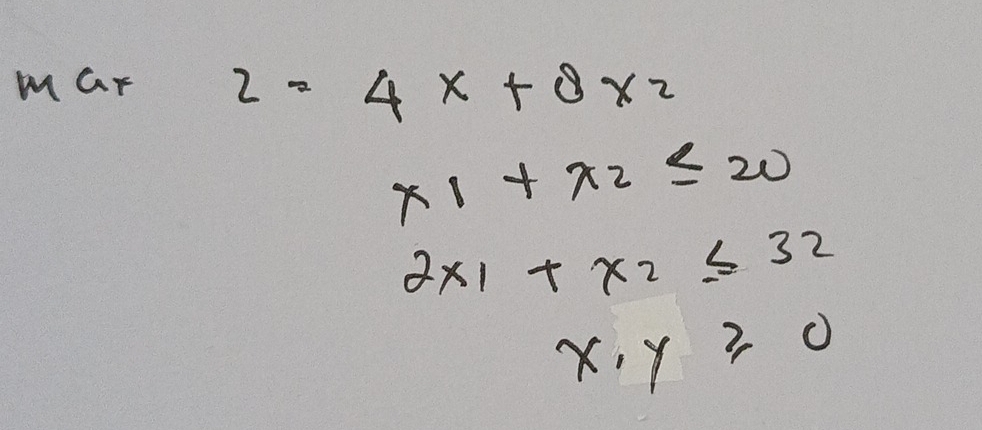 max z = 4x + 8x2
x1 + x2 ≤ 20
2x1 + x2 ≤ 32
x, y ≥ 0